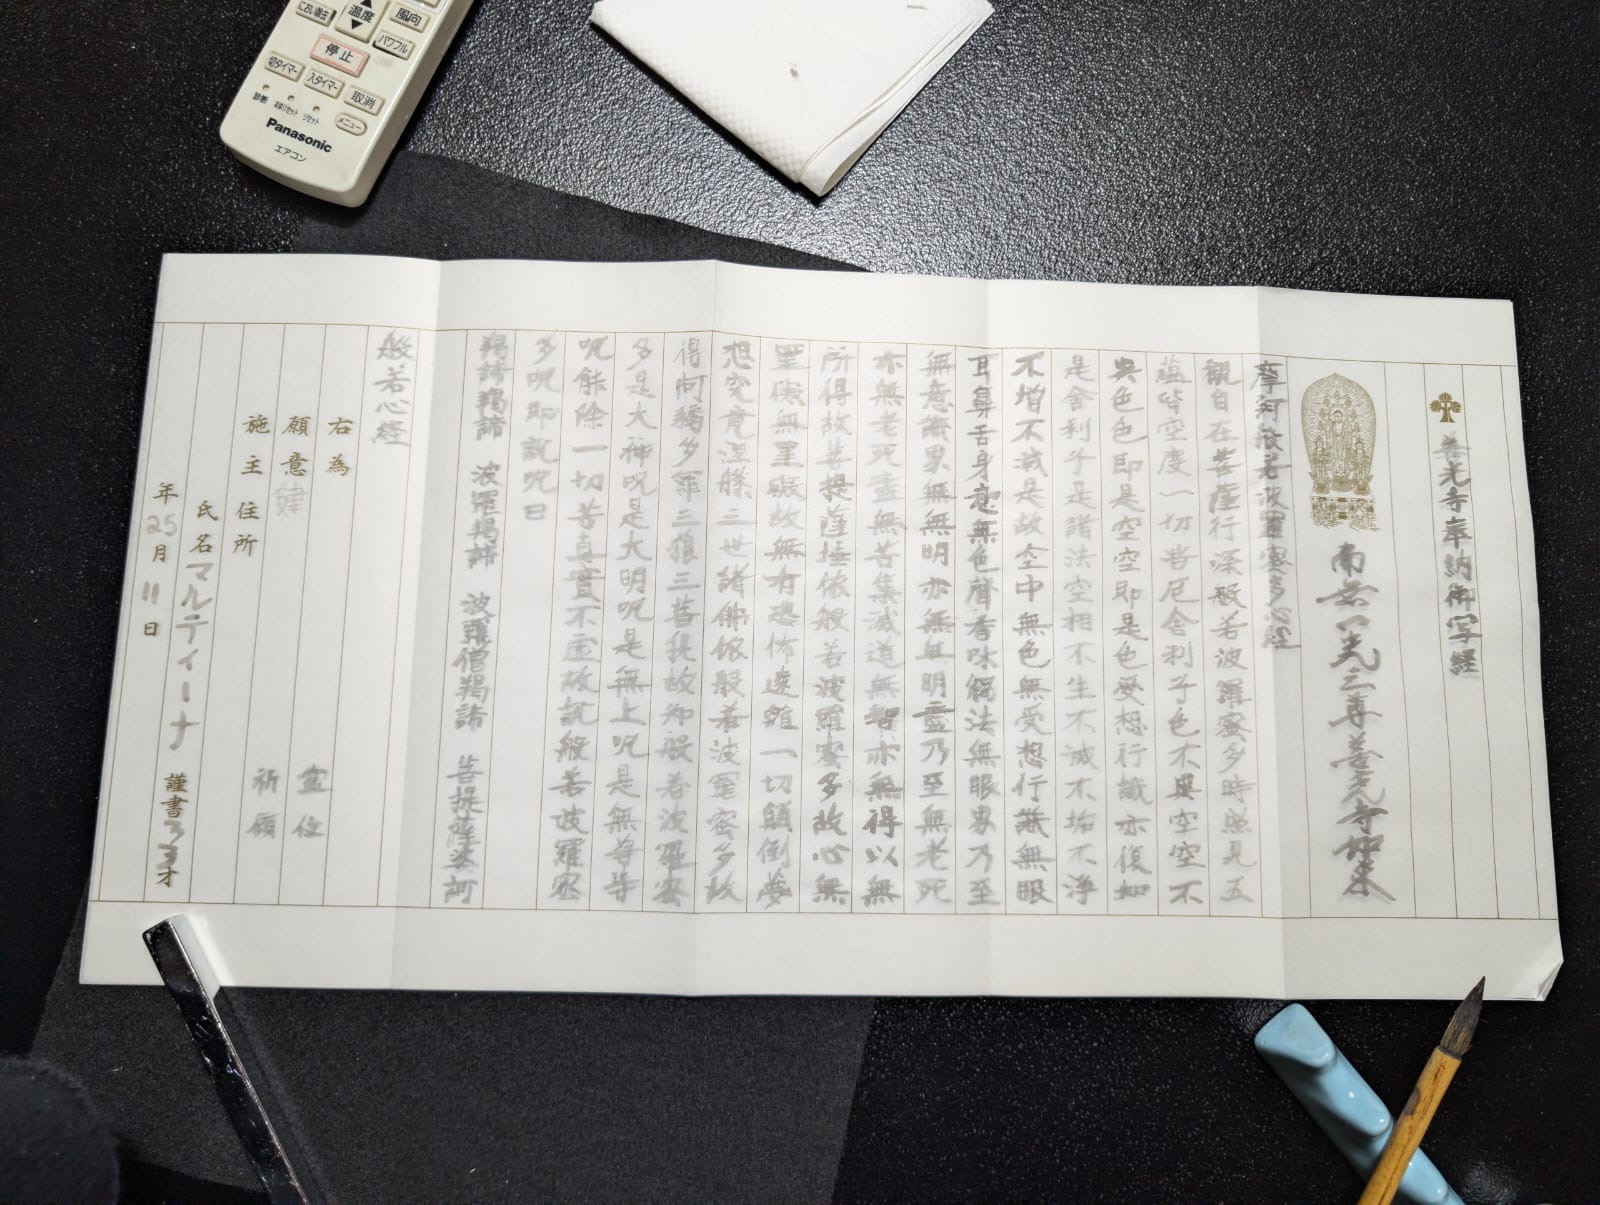 におい除去
温度
風向
パワフル
停止
切タイマー
入タイマー
取消
診断
リセット
メニュー
Panasonic
エアコン
善光寺奉納御写経
南無一光三尊善光寺如来
摩訶般若波羅蜜多心経
観自在菩薩行深般若波羅蜜多時照見五
蘊皆空度一切苦厄舎利子色不異空空不
異色色即是空空即是色受想行識亦復如
是舎利子是諸法空相不生不滅不垢不浄
不増不減是故空中無色無受想行識無眼
耳鼻舌身意無色声香味触法無眼界乃至
無意識界無無明亦無無明尽乃至無老死
亦無老死尽無苦集滅道無智亦無得以無
所得故菩提薩埵依般若波羅蜜多故心無
罣礙無罣礙故無有恐怖遠離一切顛倒夢
想究竟涅槃三世諸佛依般若波羅蜜多故
得阿耨多羅三藐三菩提故知般若波羅蜜
多是大神呪是大明呪是無上呪是無等等
呪能除一切苦真實不虚故説般若波羅蜜
多呪即説呪曰
羯諦羯諦 波羅羯諦 波羅僧羯諦 菩提薩婆訶
般若心経
右為 霊位
願意 祈願
施主 住所
氏名 マルティーナ 謹書 33才
年25月11日